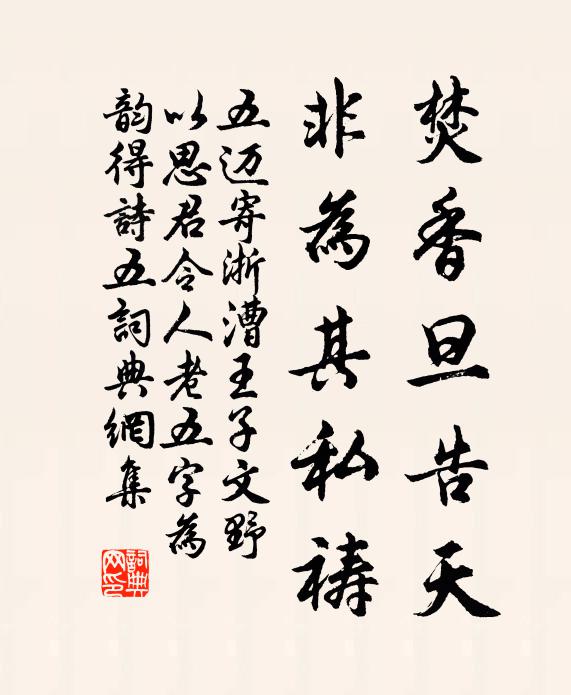 焚香旦告天
非為其私祷
五迈寄浙漕王子文野
以思君令人老五字為
韵得詩五詞典網集
詞典网印